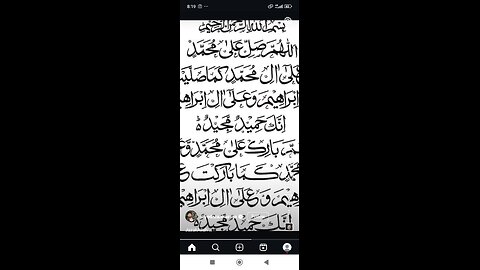 8:19
بسم الله الرحمن الرحيم
اللهم صل على محمد
على ال محمد كما صليت
ابراهيم وعلى ال ابراهيم
انك حميد مجيد
بارك على محمد و
محمد كما باركت ع
وعلى ال ابراهيم
انك حميد مجيد